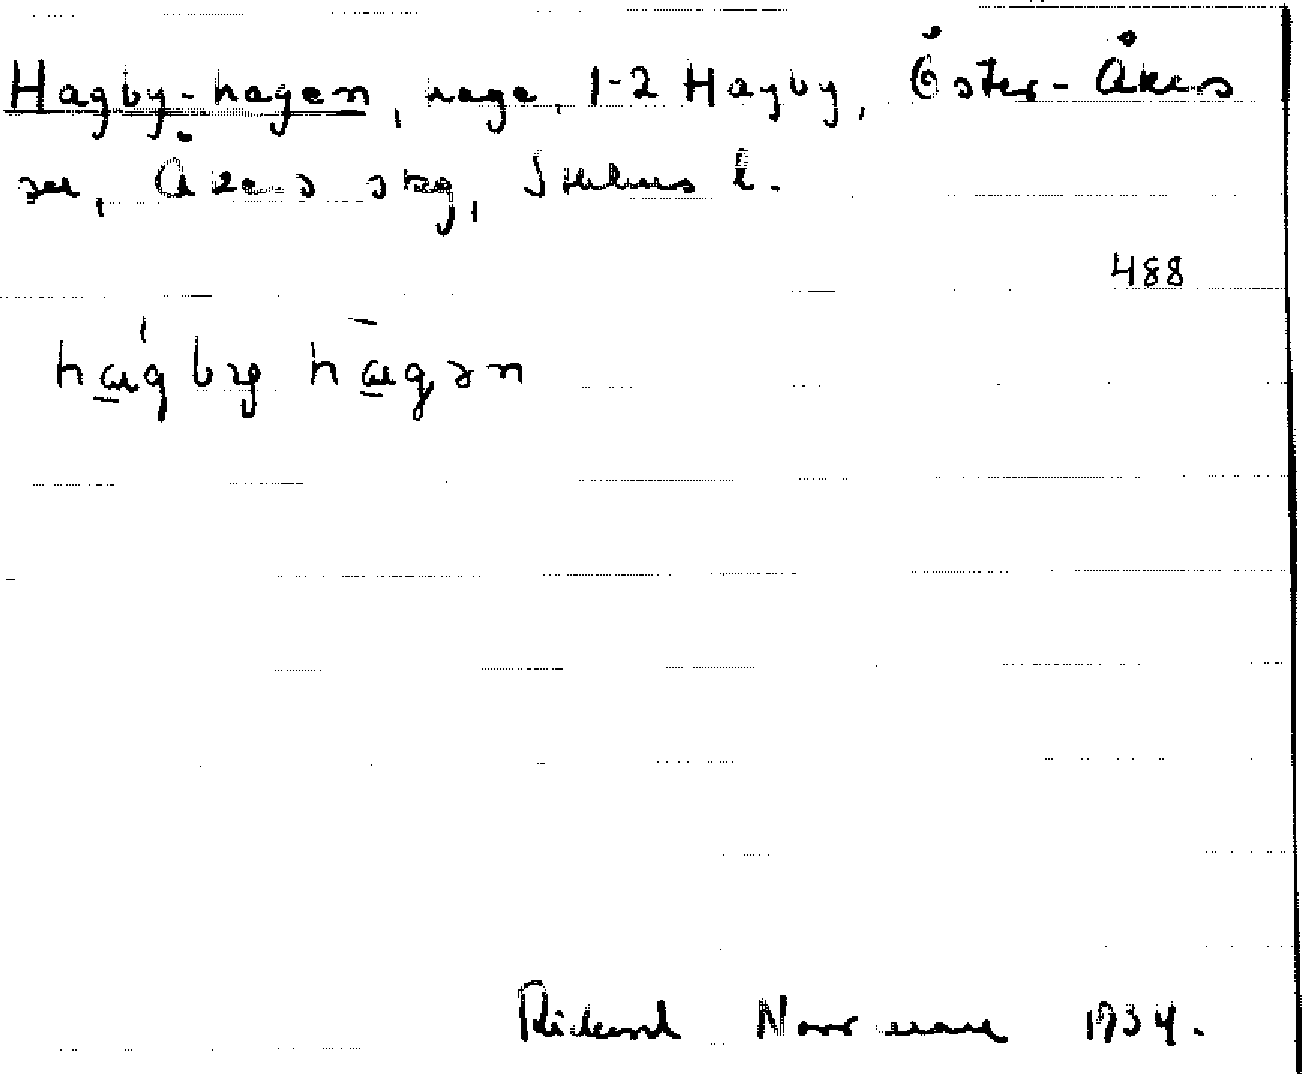 Hagby-hagen, hage, 1-2 Hagby, Öster-Åkers
sn, Åkers skg, Sthlms l.
488
hag by hagən
Rickard Norrman 1934.